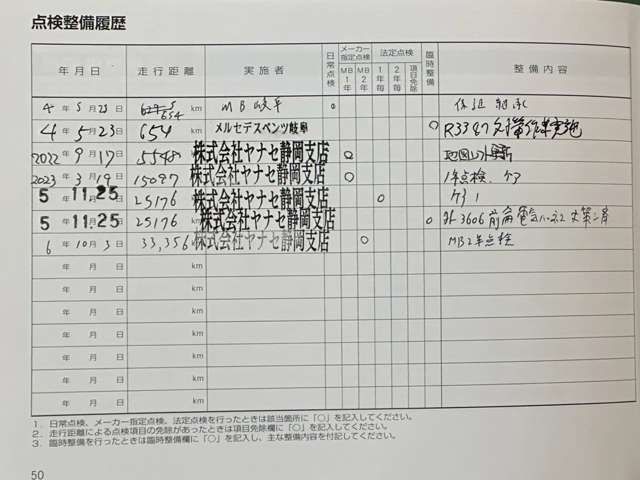 点検整備履歴
年月日 走行距離 実施者 日常点検 メーカー指定点検 MB1年 MB2年 法定点検 1年毎 2年毎 項目免除 臨時整備 整備内容
4年5月23日 654 km MB岐阜 ○ 保証継承
4年5月23日 654 km メルセデスベンツ岐阜 ○ R3347
2022年9月17日 5548 km 株式会社ヤナセ静岡支店 ○ 地図
2023年3月19日 15097 km 株式会社ヤナセ静岡支店 ○ 1年点検、ケア
5年11.25日 25176 km 株式会社ヤナセ静岡支店 ○ ケア1
5年11.25日 25176 km 株式会社ヤナセ静岡支店 ○ 3606
6年10月3日 33,356 km 株式会社ヤナセ静岡支店 ○ MB2年点検
年月日 km
年月日 km
年月日 km
年月日 km
年月日 km
年月日 km
年月日 km
1.日常点検、メーカー指定点検、法定点検を行ったときは該当箇所に「○」を記入してください。
2.走行距離による点検項目の免除があったときは項目免除欄に「○」を記入してください。
3.臨時整備を行ったときは臨時整備欄に「○」を記入し、主な整備内容を付記してください。
50